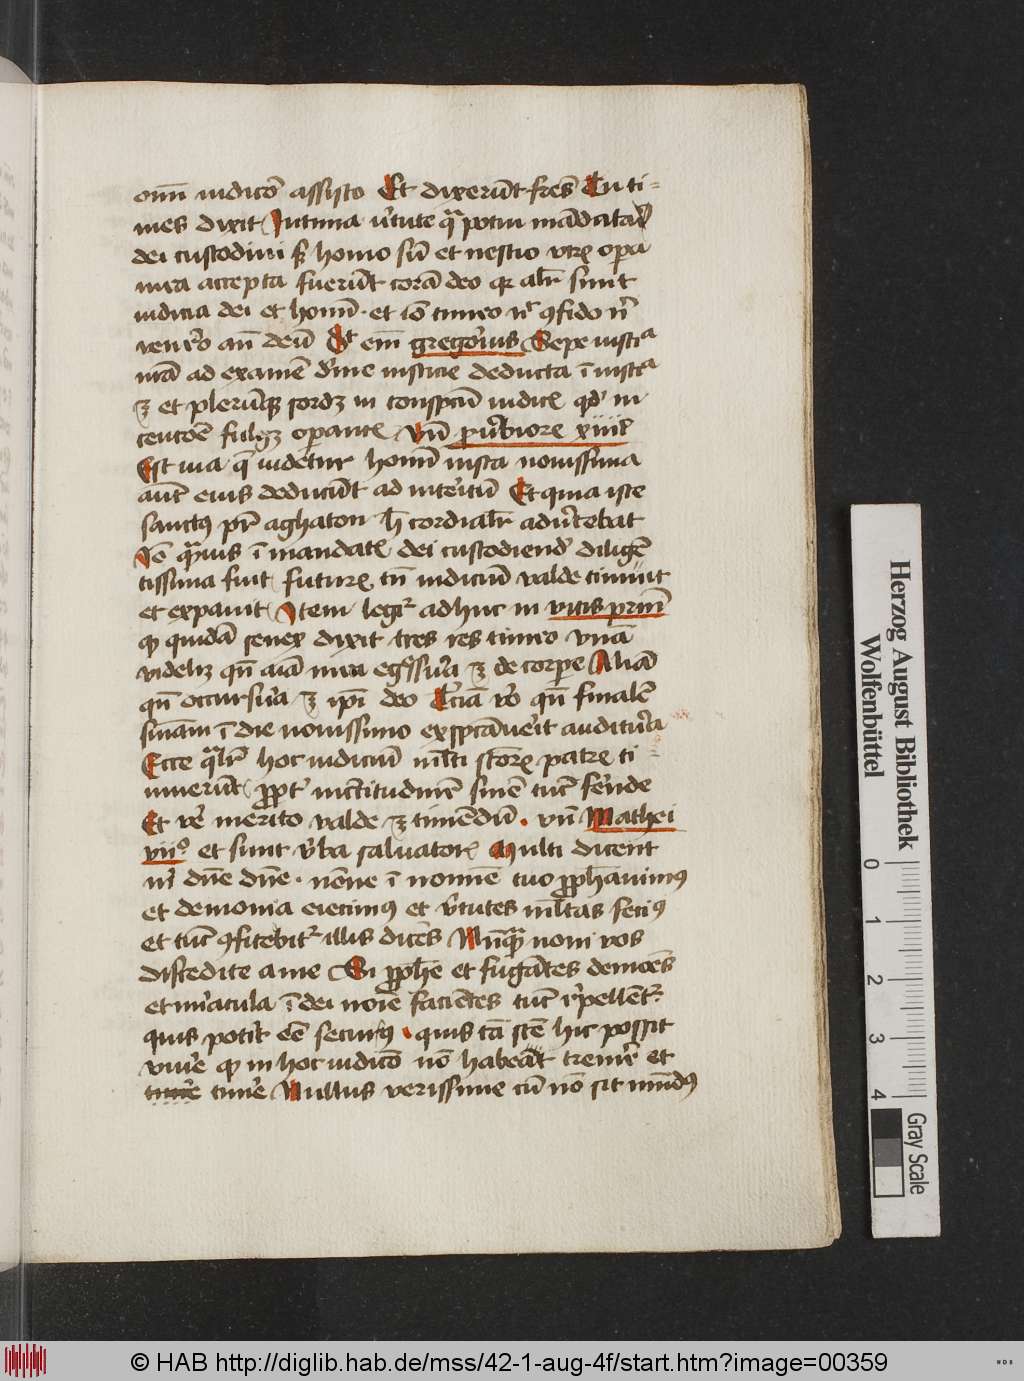 om̄ iudicō assisto Et dixerūt fres̄ Tu ti=
mes dixit Intima v̓tute qͣ potui mādata
dei custodiui sꝫ homo sū et nescio vtꝝ opa
mea accepta fuerūt corā deo qꝛ alr̄ sunt
iudicia dei et homī · et iō timeo
venero añ deū Et em̄ gregorius Sepe iusticia
nr̄a ad examē dīne iusticie deducta ī iusticia
ꝫ et plerūqꝫ sordꝫ in conspcū iudicꝭ qd̓ in
tencōe fulgꝫ opantꝭ vn̄ puerbioꝝ xiiii
Est uia q̄ videtur homī iusta nouissima
aūt eius deducūt ad interitū Et quia iste
sanctus pr̄ aghaton h̄ cordialr̄ aduertebat
Iō qͣuis ī mandatꝭ dei custodiend̓ diligē
tissima fuit futurꝝ tn̄ iudiciū valde timuit
et expauit Item legit̓ adhuc in vitis prm̄
ꝙ quidā senex dixit tres res timeo vnā
videlꝫ qn̄ aīa mea egressura ꝫ de corpe Aliā
qn̄ occursura ꝫ ipī deo Terciā vo qn̄ finalē
snīam ī die nouissimo exspectauerit auditura
Ecce qͣlr̄ hoc iudiciū ml̄ti sctōꝝ patrꝝ ti=
muerūt ppt̓ incertitudinē snīe tūc ferende
Et ve̓ merito valde ꝫ timēdū · vn̄ Mathei
vii° et sunt v̓ba saluatorꝭ Multi dicent
m̓ dn̄e dn̄e · nōne ī nomīe tuo pphauimꝰ
et demonia eiecimꝰ et v̓tutes ml̄tas fecimꝰ
et tūc ꝯfitebit̓ illis dicēs Nūqͣ noui vos
discedite a me Si pphē et fugātes demōes
et miracula ī dei noīe faciētes tūc repellent̓
quis poterit eē securꝰ · quis tā sctē hic possit
viue̓ ꝙ in hoc iudicō nō habeāt treme̓ et
time̓ Nullus verissime cū nō sit mūdꝰ
Herzog August Bibliothek
Wolfenbüttel
0 1 2 3 4
Gray Scale
© HAB http://diglib.hab.de/mss/42-1-aug-4f/start.htm?image=00359